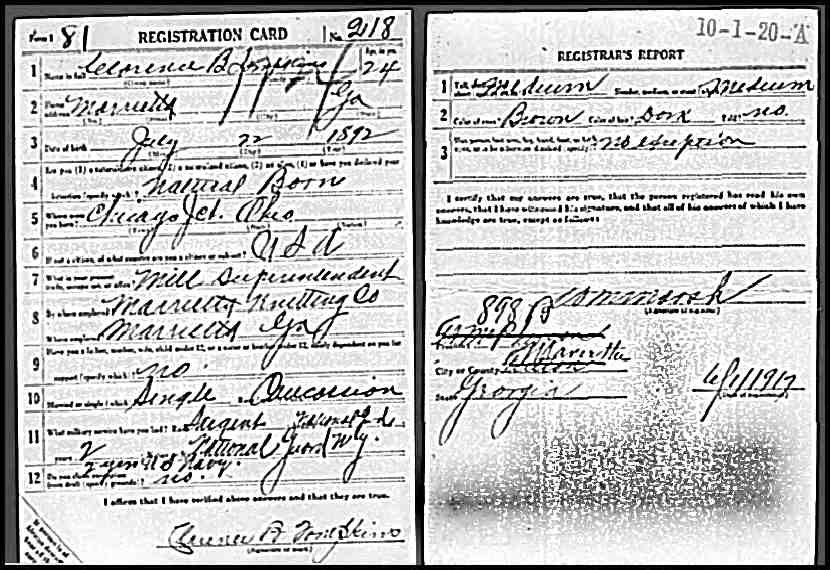 Form 1 81 REGISTRATION CARD No. 218
1 Name in full Clarence B Tompkins Age, in yrs. 24
2 Home address Marrietta Ga
3 Date of birth July 22 1892
4 Are you (1) a natural-born citizen, (2) a naturalized citizen, (3) an alien, (4) or have you declared your intention (specify which)? Natural Born
5 Where were you born? Chicago Jct. Ohio
6 If not a citizen, of what country are you a citizen or subject? U S A
7 What is your present trade, occupation, or office? Mill Superintendent
8 By whom employed? Marrietta Knitting Co
Where employed? Marrietta Ga
9 Have you a father, mother, wife, child under 12, or a sister or brother under 12, solely dependent on you for support (specify which)? no.
10 Married or single (which)? Single Caucasian
11 What military service have you had? Rank Sargent
years 2 National Guard W.
2 years U S Navy.
12 Do you claim exemption from draft (specify grounds)? no.
I affirm that I have verified above answers and that they are true.
Clarence B Tompkins
(Signature or mark)
10-1-20-A
REGISTRAR'S REPORT
1 Medium Slender, medium, or stout (which)? Medium
2 Color of eyes? Brown Color of hair? Dark Bald? no.
3 no exseption
I certify that my answers are true, that the person registered has read his own
answers, that I have witnessed his signature, and that all of his answers of which I have
knowledge are true, except as follows:
898
(Signature of registrar)
Precinct
City or County
State Georgia 6/5/1917
(Date of registration)